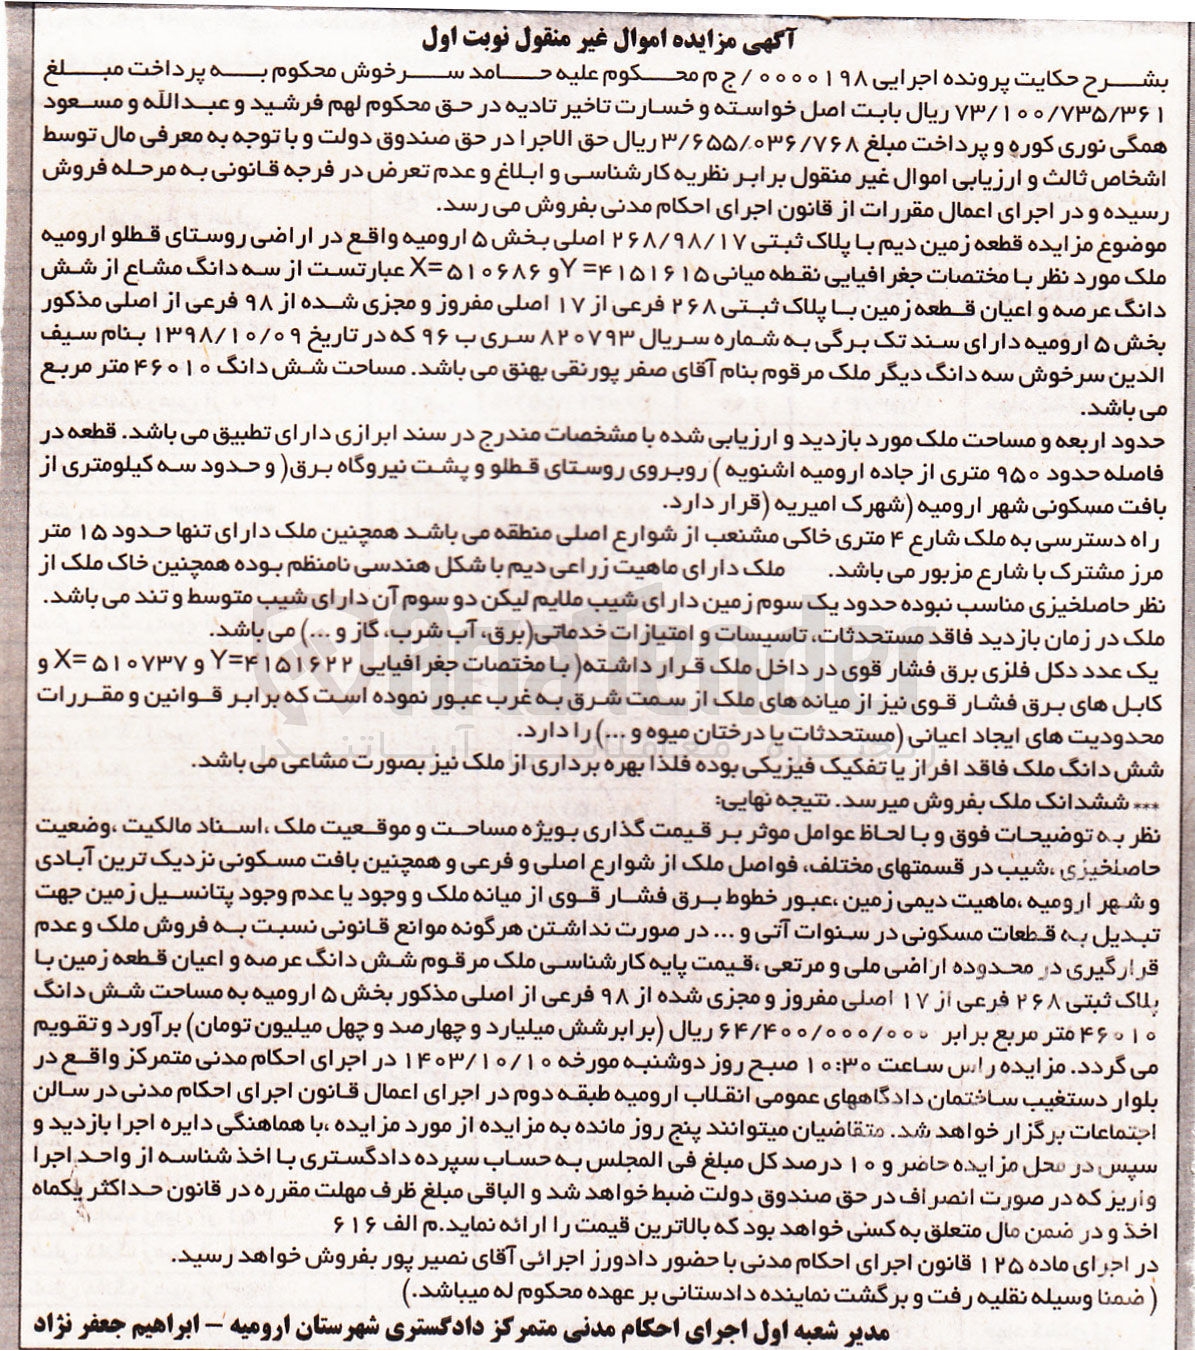 آگهی مزایده اموال غیر منقول نوبت اول
بشرح حکایت پرونده اجرایی ۰۰۰۰۱۹۸/ج م محکوم علیه حامد سرخوش محکوم به پرداخت مبلغ
۷۳/۱۰۰/۷۳۵/۳۶۱ ریال بابت اصل خواسته و خسارت تاخیر تادیه در حق محکوم لهم فرشید و عبدالله و مسعود
همگی نوری کوره و پرداخت مبلغ ۳/۶۵۵/۰۳۶/۷۶۸ ریال حق الاجرا در حق صندوق دولت و با توجه به معرفی مال توسط
اشخاص ثالث و ارزیابی اموال غیر منقول برابر نظریه کارشناسی و ابلاغ و عدم تعرض در فرجه قانونی به مرحله فروش
رسیده و در اجرای اعمال مقررات از قانون اجرای احکام مدنی بفروش می رسد.
موضوع مزایده قطعه زمین دیم با پلاک ثبتی ۲۶۸/۹۸/۱۷ اصلی بخش ۵ ارومیه واقع در اراضی روستای قطلو ارومیه
ملک مورد نظر با مختصات جغرافیایی نقطه میانی Y=۴۱۵۱۶۱۵ و X=۵۱۰۶۸۶ عبارتست از سه دانگ مشاع از شش
دانگ عرصه و اعیان قطعه زمین با پلاک ثبتی ۲۶۸ فرعی از ۱۷ اصلی مفروز و مجزی شده از ۹۸ فرعی از اصلی مذکور
بخش ۵ ارومیه دارای سند تک برگی به شماره سریال ۸۲۰۷۹۳ سری ب ۹۶ که در تاریخ ۱۳۹۸/۱۰/۰۹ بنام سیف
الدین سرخوش سه دانگ دیگر ملک مرقوم بنام آقای صفر پورنقی بهنق می باشد. مساحت شش دانگ ۴۶۰۱۰ متر مربع
می باشد.
حدود اربعه و مساحت ملک مورد بازدید و ارزیابی شده با مشخصات مندرج در سند ابرازی دارای تطبیق می باشد. قطعه در
فاصله حدود ۹۵۰ متری از جاده ارومیه اشنویه )روبروی روستای قطلو و پشت نیروگاه برق( و حدود سه کیلومتری از
بافت مسکونی شهر ارومیه (شهرک امیریه (قرار دارد.
راه دسترسی به ملک شارع ۴ متری خاکی مشنعب از شوارع اصلی منطقه می باشد همچنین ملک دارای تنها حدود ۱۵ متر
مرز مشترک با شارع مزبور می باشد. ملک دارای ماهیت زراعی دیم با شکل هندسی نامنظم بوده همچنین خاک ملک از
نظر حاصلخیزی مناسب نبوده حدود یک سوم زمین دارای شیب ملایم لیکن دو سوم آن دارای شیب متوسط و تند می باشد.
ملک در زمان بازدید فاقد مستحدثات، تاسیسات و امتیازات خدماتی(برق، آب شرب، گاز و ...) می باشد.
یک عدد دکل فلزی برق فشار قوی در داخل ملک قرار داشته( با مختصات جغرافیایی Y=۴۱۵۱۶۲۲ و X=۵۱۰۷۳۷ و
کابل های برق فشار قوی نیز از میانه های ملک از سمت شرق به غرب عبور نموده است که برابر قوانین و مقررات
محدودیت های ایجاد اعیانی (مستحدثات یا درختان میوه و ...) را دارد.
شش دانگ ملک فاقد افراز یا تفکیک فیزیکی بوده فلذا بهره برداری از ملک نیز بصورت مشاعی می باشد.
*** ششدانک ملک بفروش میرسد. نتیجه نهایی:
نظر به توضیحات فوق و با لحاظ عوامل موثر بر قیمت گذاری بویژه مساحت و موقعیت ملک ،اسناد مالکیت ،وضعیت
حاصلخیزی ،شیب در قسمتهای مختلف، فواصل ملک از شوارع اصلی و فرعی و همچنین بافت مسکونی نزدیک ترین آبادی
و شهر ارومیه ،ماهیت دیمی زمین ،عبور خطوط برق فشار قوی از میانه ملک و وجود یا عدم وجود پتانسیل زمین جهت
تبدیل به قطعات مسکونی در سنوات آتی و ... در صورت نداشتن هرگونه موانع قانونی نسبت به فروش ملک و عدم
قرارگیری در محدوده اراضی ملی و مرتعی ،قیمت پایه کارشناسی ملک مرقوم شش دانگ عرصه و اعیان قطعه زمین با
پلاک ثبتی ۲۶۸ فرعی از ۱۷ اصلی مفروز و مجزی شده از ۹۸ فرعی از اصلی مذکور بخش ۵ ارومیه به مساحت شش دانگ
۴۶۰۱۰ متر مربع برابر ۶۴/۴۰۰/۰۰۰/۰۰۰ ریال (برابرشش میلیارد و چهارصد و چهل میلیون تومان) برآورد و تقویم
می گردد. مزایده راس ساعت ۱۰:۳۰ صبح روز دوشنبه مورخه ۱۴۰۳/۱۰/۱۰ در اجرای احکام مدنی متمرکز واقع در
بلوار دستغیب ساختمان دادگاههای عمومی انقلاب ارومیه طبقه دوم در اجرای اعمال قانون اجرای احکام مدنی در سالن
اجتماعات برگزار خواهد شد. متقاضیان میتوانند پنج روز مانده به مزایده از مورد مزایده ،با هماهنگی دایره اجرا بازدید و
سپس در محل مزایده حاضر و ۱۰ درصد کل مبلغ فی المجلس به حساب سپرده دادگستری با اخذ شناسه از واحد اجرا
واریز که در صورت انصراف در حق صندوق دولت ضبط خواهد شد و الباقی مبلغ ظرف مهلت مقرره در قانون حداکثر یکماه
اخذ و در ضمن مال متعلق به کسی خواهد بود که بالاترین قیمت را ارائه نماید.م الف ۶۱۶
در اجرای ماده ۱۲۵ قانون اجرای احکام مدنی با حضور دادورز اجرائی آقای نصیر پور بفروش خواهد رسید.
( ضمنا وسیله نقلیه رفت و برگشت نماینده دادستانی بر عهده محکوم له میباشد.)
مدیر شعبه اول اجرای احکام مدنی متمرکز دادگستری شهرستان ارومیه – ابراهیم جعفر نژاد